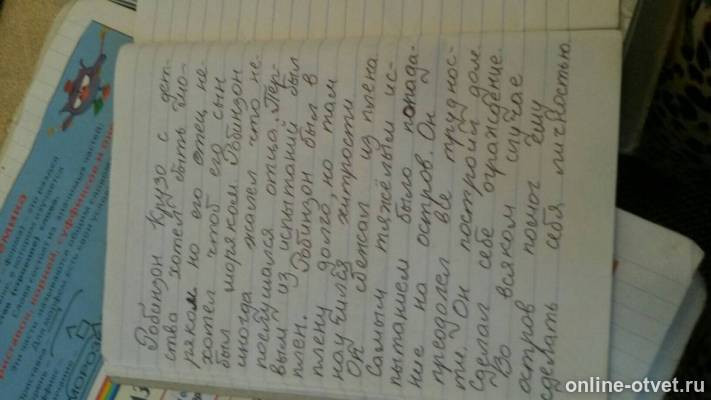 Робинзон Крузо с дет-
ства хотел быть мо-
ряком но его отец не
хотел чтоб его сын
был моряком. Робинзон
иногда жалел что не
послушался отца. Пер-
вым из испытаний был
плен. Робинзон был в
плену долго, но там
научился хитрости
Он сбежал из плена
Самым тяжёлым ис-
пытанием было попада-
ние на остров. Он
преодолел все труднос-
ти. Он построил дом
сделал себе ограждение
Во всяком случае
остров помог ему
сделать себя личностью
МОРОЗ
online-otvet.ru